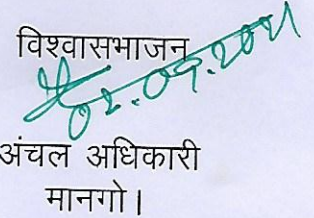 विश्वासभाजन
02.09.2021
अंचल अधिकारी
मानगो।